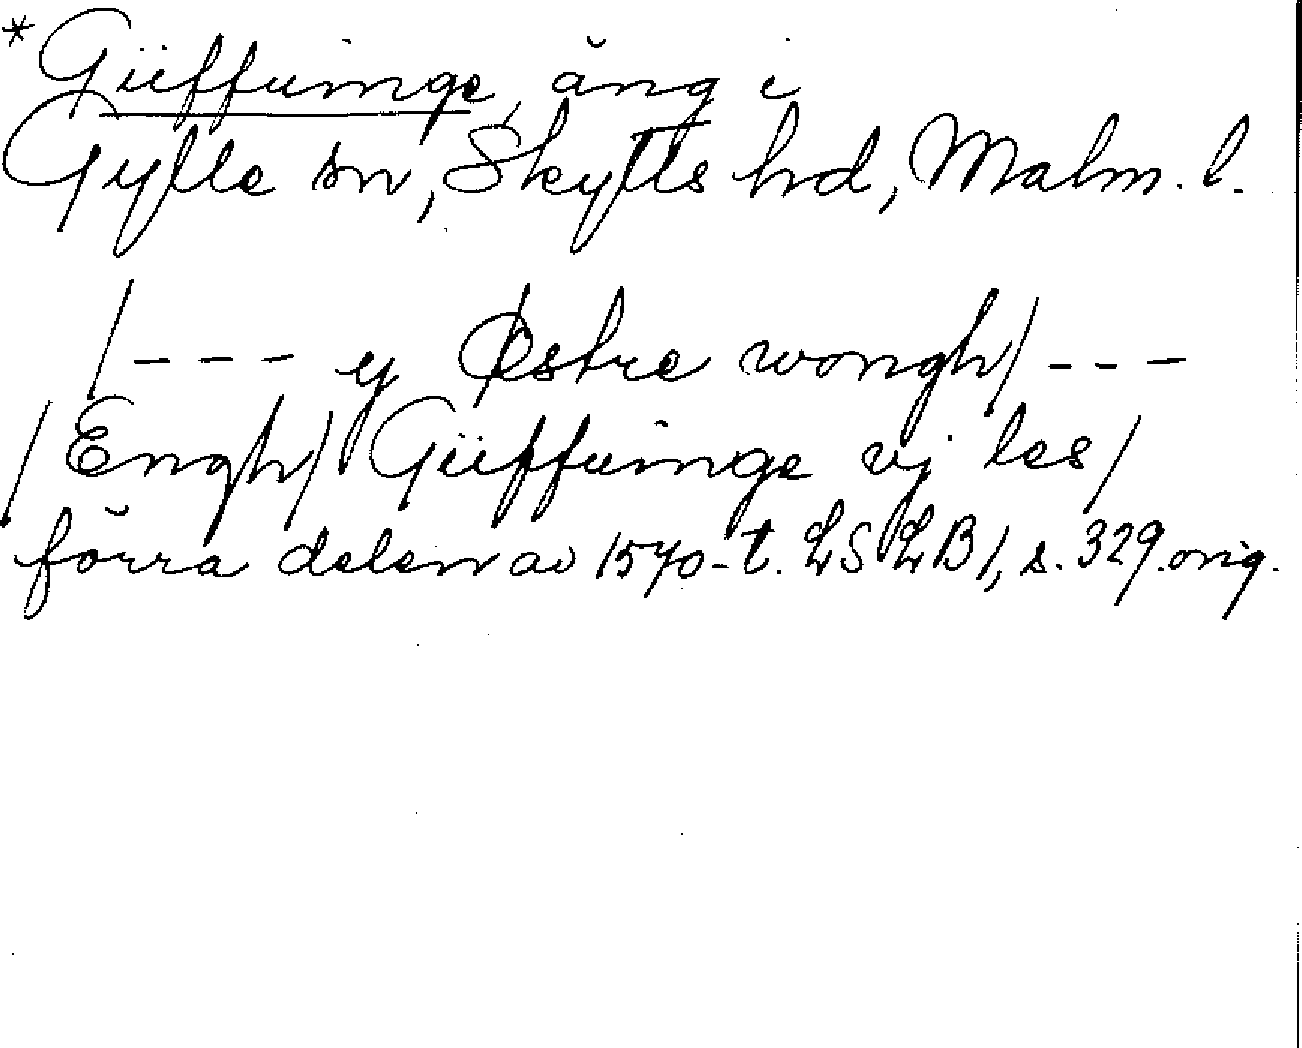 *Güffuinge, äng i
Gylle sn, Skytts hd, Malm. l.
/--- y Østre wongh/ ---
/Engh/ Güffuinge vj les/
förra delen av 1570-t. LSLB1, s. 329 orig.